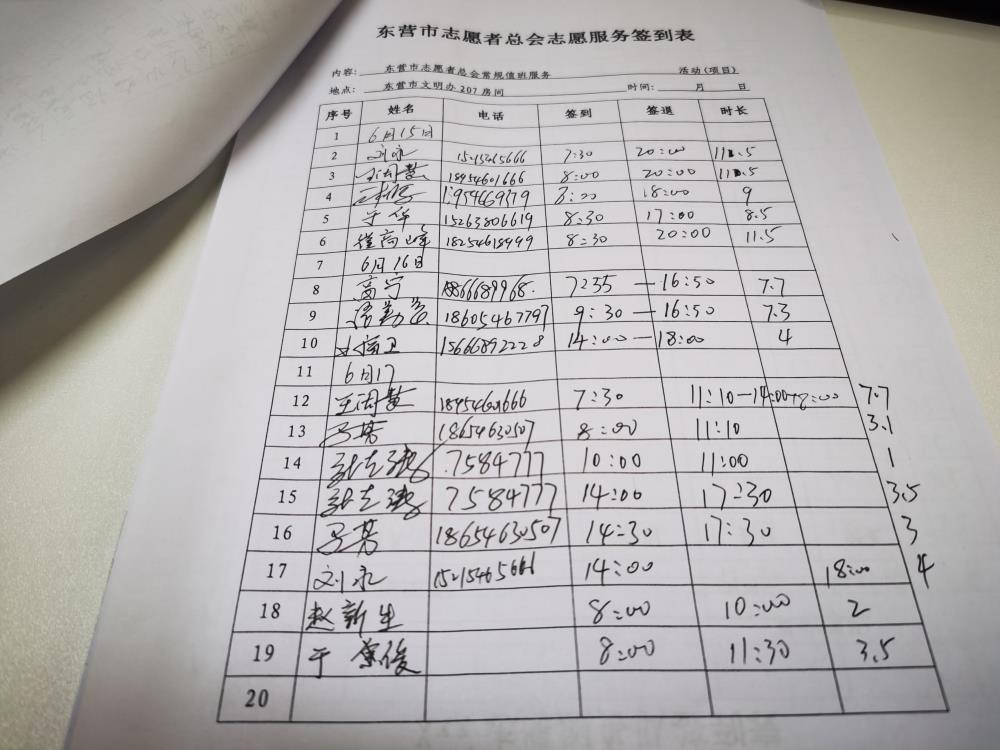 东营市志愿者总会志愿服务签到表
内容: 东营市志愿者总会常规值班服务 活动(项目)
地点: 东营市文明办207房间 时间: 月 日
序号 姓名 电话 签到 签退 时长
1 6月15日
2 刘永 15215465666 7:30 20:00 11.5
3 王闰慧 18954601666 8:00 20:00 11.5
4 8:00 18:00 9
5 于华 15263806619 8:30 17:00 8.5
6 崔高峰 18254618999 8:30 20:00 11.5
7 6月16日
8 高宁 1866689968. 7:35 —16:50 7.7
9 18605467797 9:30 —16:50 7.3
10 15666892228 14:00 —18:00 4
11 6月17
12 王闰慧 18954601666 7:30 11:10—14:00—18:00 7.7
13 18654630507 8:00 11:10 3.1
14 7584777 10:00 11:00 1
15 7584777 14:00 17:30 3.5
16 18654630507 14:30 17:30 3
17 刘永 15215465666 14:00 18:00 4
18 赵新生 8:00 10:00 2
19 于俊 8:00 11:30 3.5
20